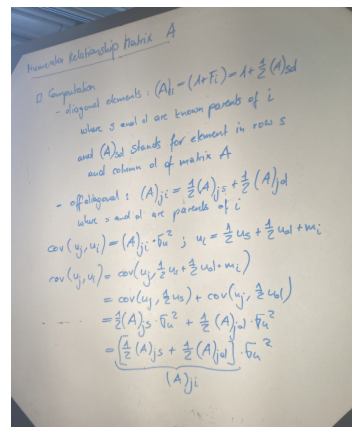 Numerator Relationship Matrix A
□ Computation
- diagonal elements : (A)ii = (1+Fi) = 1+½(A)sd
where s and d are known parents of i
and (A)sd stands for element in row s
and column d of matrix A
- offdiagonal : (A)ji = ½(A)js + ½(A)jd
where s and d are parents of i
cov(uj, ui) = (A)ji · σu² ; ui = ½us + ½ud + mi
cov(uj, ui) = cov(uj, ½us + ½ud + mi)
= cov(uj, ½us) + cov(uj, ½ud)
= ½(A)js · σu² + ½(A)jd · σu²
= [½(A)js + ½(A)jd] · σu²
(A)ji